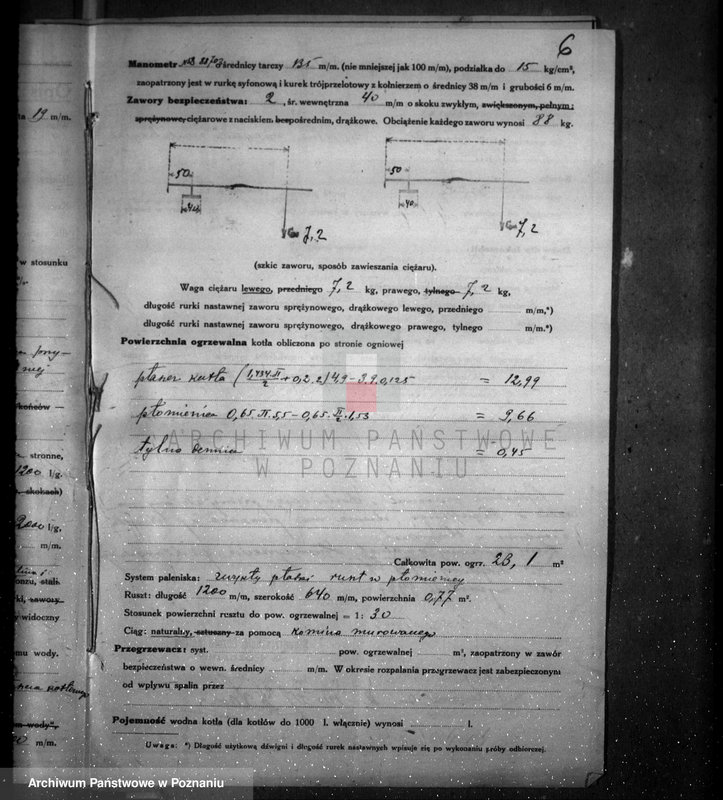 6
Manometr № 38703 średnicy tarczy 135 m/m. (nie mniejszej jak 100 m/m), podziałka do 15 kg/cm²,
zaopatrzony jest w rurkę syfonową i kurek trójprzelotowy z kołnierzem o średnicy 38 m/m i grubości 6 m/m.
Zawory bezpieczeństwa: 2, śr. wewnętrzna 40 m/m o skoku zwykłym, zwiększonym, pełnym;
sprężynowe, ciężarowe z naciskiem bezpośrednim, drążkowe. Obciążenie każdego zaworu wynosi 88 kg.
50 50
40 40
7,2 7,2
(szkic zaworu, sposób zawieszania ciężaru).
Waga ciężaru lewego, przedniego 7,2 kg, prawego, tylnego 7,2 kg,
długość rurki nastawnej zaworu sprężynowego, drążkowego lewego, przedniego m/m,*)
długość rurki nastawnej zaworu sprężynowego, drążkowego prawego, tylnego m/m.*)
Powierzchnia ogrzewalna kotła obliczona po stronie ogniowej
płaszcz kotła (1,434.π/2 + 0,2.2) 4,9 - 3.9.0,125 = 12,99
płomienica 0,65.π.5,5 - 0,65.π/2.1,53 = 9,66
tylna dennica = 0,45
ARCHIWUM PAŃSTWOWE
W POZNANIU
Całkowita pow. ogrz. 23,1 m²
System paleniska: zwykły płaski ruszt w płomienicy
Ruszt: długość 1200 m/m, szerokość 640 m/m, powierzchnia 0,77 m².
Stosunek powierzchni rusztu do pow. ogrzewalnej = 1: 30
Ciąg: naturalny, sztuczny za pomocą komina murowanego
Przegrzewacz: syst. pow. ogrzewalnej m², zaopatrzony w zawór
bezpieczeństwa o wewn. średnicy m/m. W okresie rozpalania przegrzewacz jest zabezpieczony
od wpływu spalin przez
Pojemność wodna kotła (dla kotłów do 1000 l. włącznie) wynosi l.
Uwaga: *) Długość użytkową dźwigni i długość rurek nastawnych wpisuje się po wykonaniu próby odbiorczej.
19 m/m.
w stosunku
stronne,
1200 l/g.
skokach)
2000 l/g,
m/m.
stali.
zawory
widoczny
mu wody.
wody",
m/m.
Archiwum Państwowe w Poznaniu